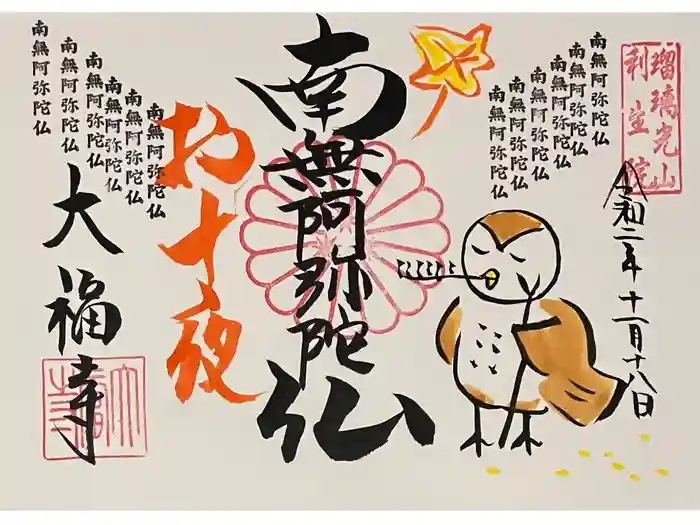 瑠璃光山
利生院
令和二年十一月十八日
南無阿弥陀仏
南無阿弥陀仏
南無阿弥陀仏
南無阿弥陀仏
南無阿弥陀仏
南無阿弥陀仏
南無阿弥陀仏
お十夜
南無阿弥陀仏
南無阿弥陀仏
南無阿弥陀仏
南無阿弥陀仏
南無阿弥陀仏
南無阿弥陀仏
大福寺